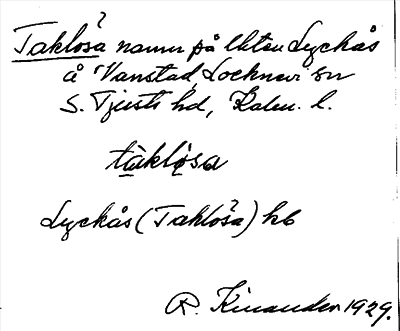 ?
Taklösa namn på lht en Lyckås
å Vanstad, Locknevi sn
S. Tjusts hd, Kalm. l.
tàklǫsa
Lyckås (Taklösa) hb
R. Kinander 1929.